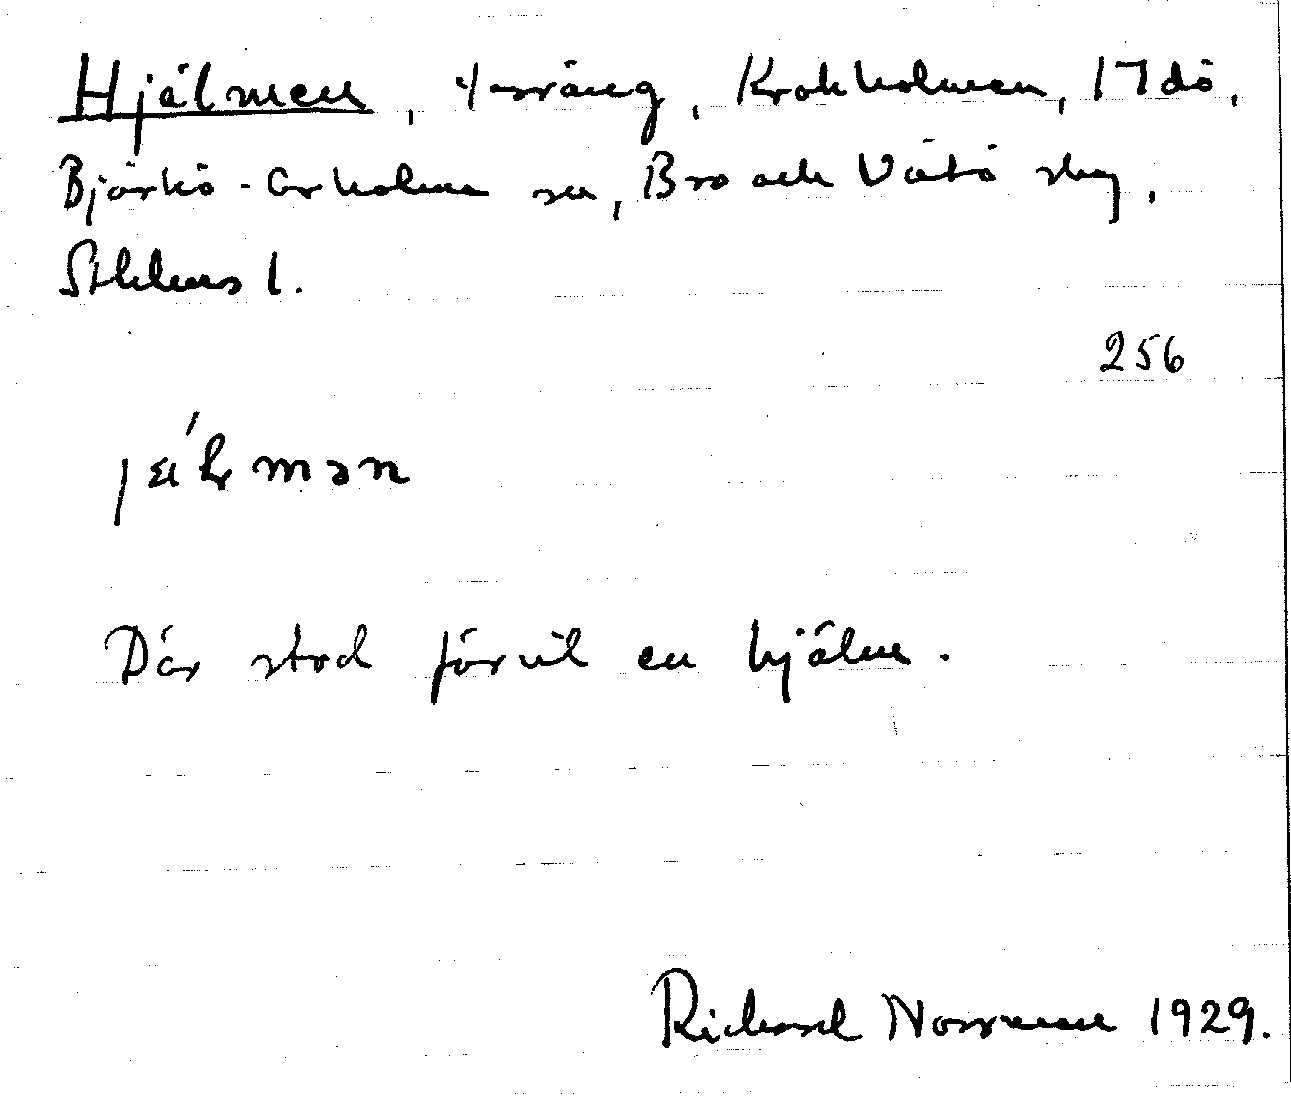 Hjälmen, terräng, Krokholmen, 17 då,
Björkö-Arholma sn, Bro och Vätö skg,
Sthlms l.
256
Där stod förut en hjälm.
Richard Norrman 1929.